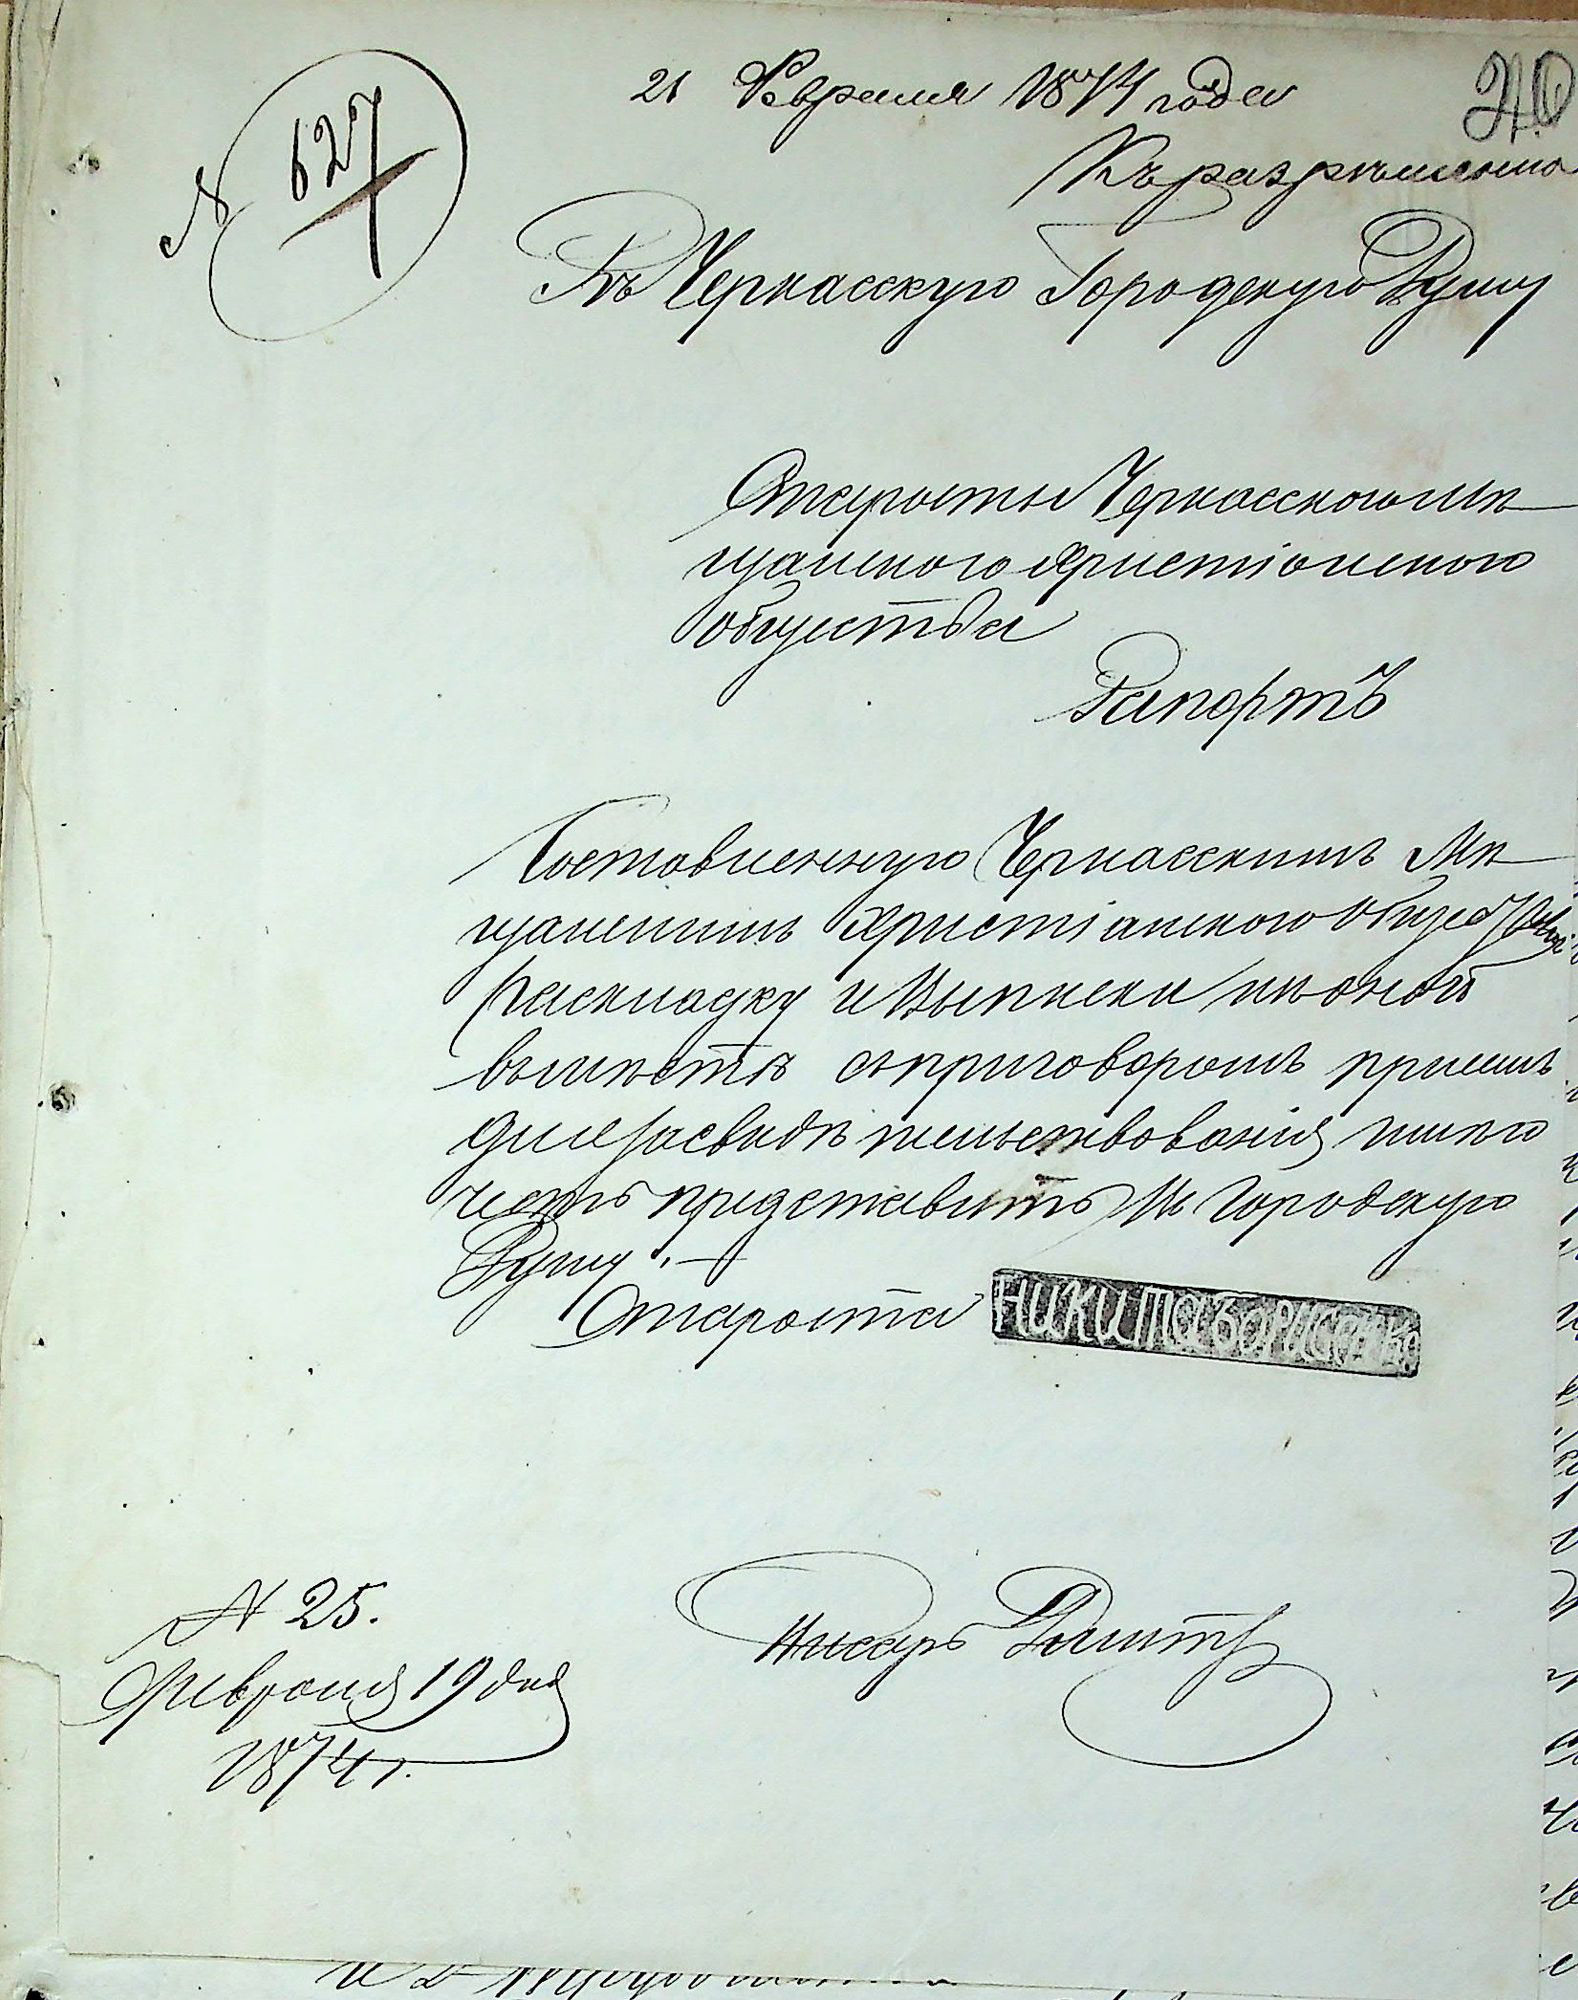 21 Февраля 1874 года
20
Къ разрѣшенію
№ 627
Въ Черкасскую Городскую Думу
Старосты Черкасского мѣ
щанского Христіанского
общества
Рапортъ
Составленную Черкасскимъ Мѣ
щанскимъ Христіанского Общества
Раскладку и Выписки къ оной
вмѣстѣ съ приговоромъ при семъ
для засвидѣтельствованія имѣю
честь представить въ Городскую
Думу. —
Староста НИКИТА БОРИСЕНКО
№ 25.
Февраля 19 дня
1874 г.
Писарь